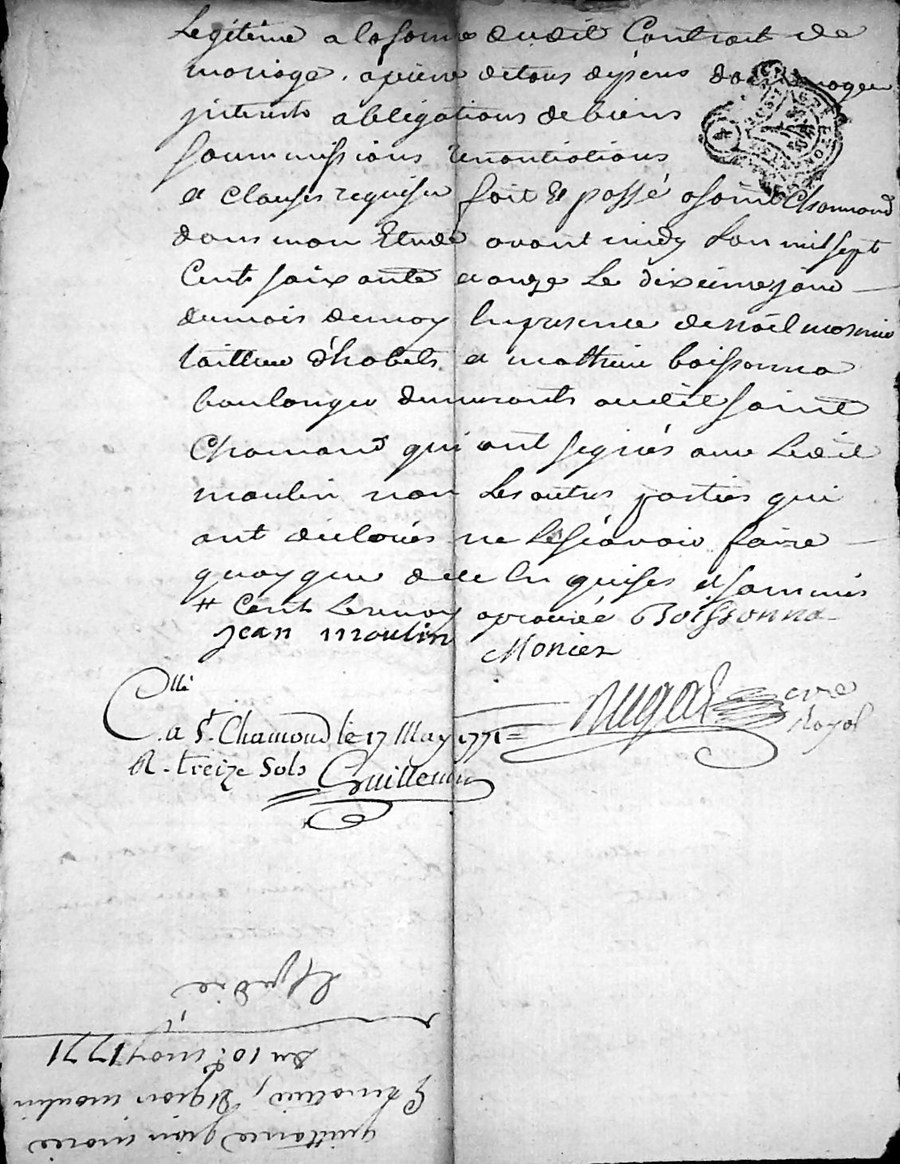 Legitime a la forme dudit Contrat de
mariage. a peine de tous depens domages
jnterets obligations de biens
soummissions renontiations
et clauses requises fait et passé a saint Chamond
dans mon Etude avant midy L'an mil sept
Cent soixante et onze Le dixieme jour
du mois de may En presence de noël mosnier
tailleur d'habits et mathieu boissonna
boulanger demeurants audit saint
Chamond qui ont signés avec Ledit
moulin non Les autres parties qui
ont declarés ne Le sçavoir faire
quoyque de ce En quises et sommés
# Cent
aprouvée Boissonna
jean moulin
Monier
Dugas
Royal
Cllé
a St. Chamond le 17 May 1771 =
R. treize sols
Guillemin
quittance
jean moulin
du 10e may 1771